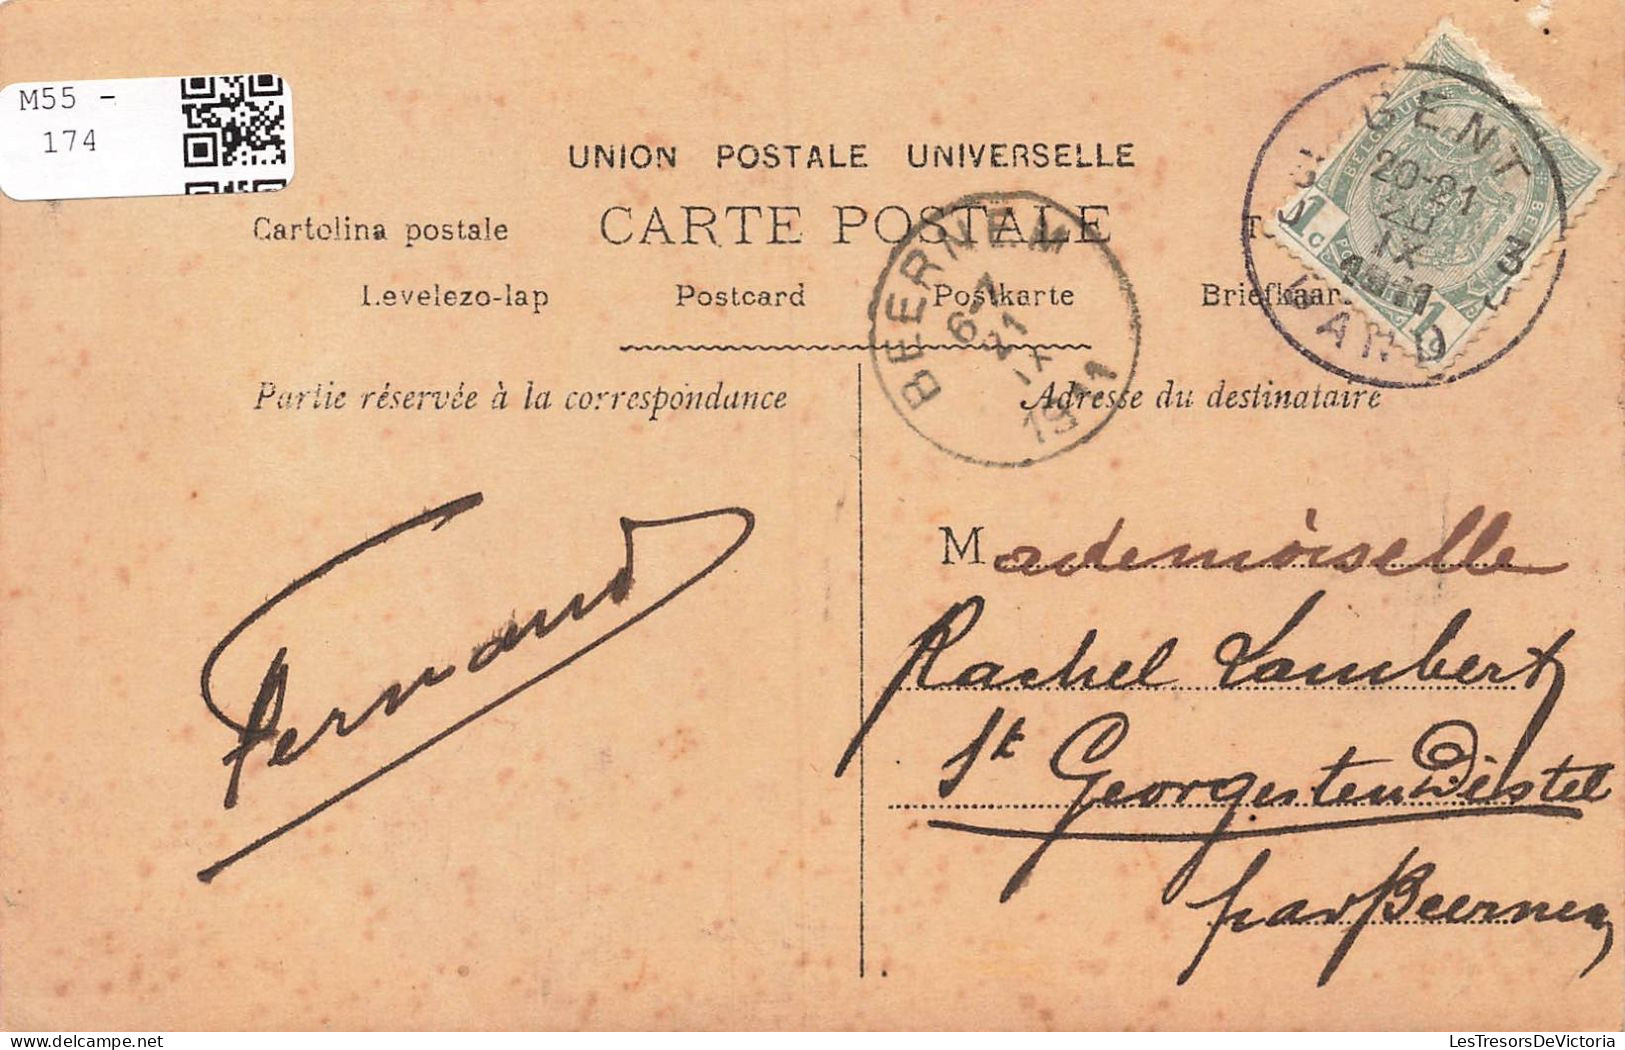 M55 -
174
UNION POSTALE UNIVERSELLE
CARTE POSTALE
Cartolina postale
Levelezo-lap
Postcard
Postkarte
Briefkaar
Partie réservée à la correspondance
Adresse du destinataire
BEERNEM
6-7
21
IX
1911
GENT
20-21
20
IX
1911
GAND
1c
Fernand
Mademoiselle
Rachel Lambert
St Georgesten Distel
par Beernem
LesTresorsDeVictoria
delcampe.net